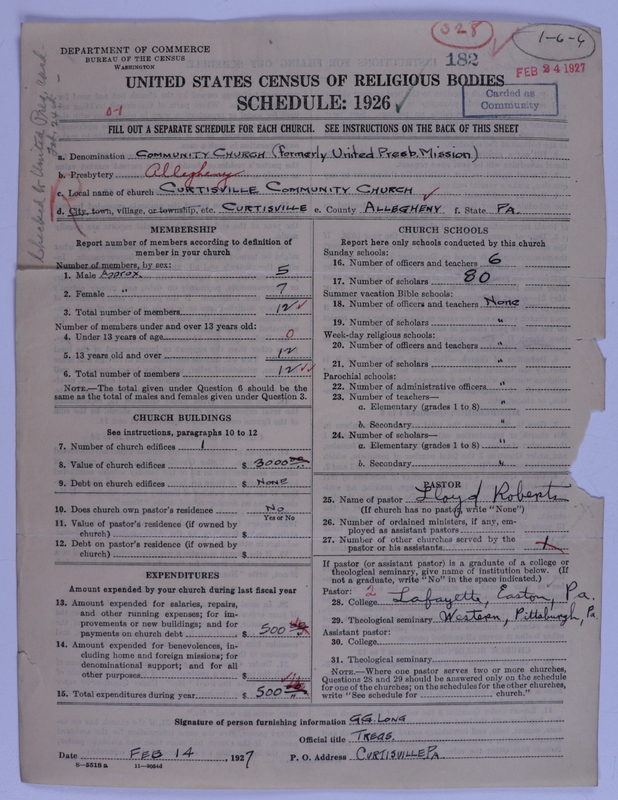 528
1-6-6
DEPARTMENT OF COMMERCE
BUREAU OF THE CENSUS
WASHINGTON
182
FEB 24 1927
UNITED STATES CENSUS OF RELIGIOUS BODIES
SCHEDULE: 1926
Carded as
Community
FILL OUT A SEPARATE SCHEDULE FOR EACH CHURCH. SEE INSTRUCTIONS ON THE BACK OF THIS SHEET
a. Denomination COMMUNITY CHURCH (formerly United Presb. Mission)
b. Presbytery Allegheny
c. Local name of church CURTISVILLE COMMUNITY CHURCH
d. City, town, village, or township, etc. CURTISVILLE e. County ALLEGHENY f. State PA.
MEMBERSHIP
Report number of members according to definition of
member in your church
Number of members, by sex:
1. Male Approx. 5
2. Female " 7
3. Total number of members 12
Number of members under and over 13 years old:
4. Under 13 years of age 0
5. 13 years old and over 12
6. Total number of members 12
NOTE.—The total given under Question 6 should be the
same as the total of males and females given under Question 3.
CHURCH BUILDINGS
See instructions, paragraphs 10 to 12
7. Number of church edifices 1
8. Value of church edifices $ 3000
9. Debt on church edifices $ NONE
10. Does church own pastor's residence No
Yes or No
11. Value of pastor's residence (if owned by
church) $
12. Debt on pastor's residence (if owned by
church) $
EXPENDITURES
Amount expended by your church during last fiscal year
13. Amount expended for salaries, repairs,
and other running expenses; for im-
provements or new buildings; and for
payments on church debt $ 500
14. Amount expended for benevolences, in-
cluding home and foreign missions; for
denominational support; and for all
other purposes $
15. Total expenditures during year $ 500
CHURCH SCHOOLS
Report here only schools conducted by this church
Sunday schools:
16. Number of officers and teachers 6
17. Number of scholars 80
Summer vacation Bible schools:
18. Number of officers and teachers None
19. Number of scholars "
Week-day religious schools:
20. Number of officers and teachers "
21. Number of scholars "
Parochial schools:
22. Number of administrative officers "
23. Number of teachers—
a. Elementary (grades 1 to 8) "
b. Secondary "
24. Number of scholars—
a. Elementary (grades 1 to 8) "
b. Secondary "
PASTOR
25. Name of pastor Lloyd Roberts
(If church has no pastor, write "None")
26. Number of ordained ministers, if any, em-
ployed as assistant pastors
27. Number of other churches served by the
pastor or his assistants 1
If pastor (or assistant pastor) is a graduate of a college or
theological seminary, give name of institution below. (If
not a graduate, write "No" in the space indicated.)
Pastor: 2
28. College Lafayette, Easton, Pa.
29. Theological seminary Western, Pittsburgh, Pa.
Assistant pastor:
30. College
31. Theological seminary
NOTE.—Where one pastor serves two or more churches,
Questions 28 and 29 should be answered only on the schedule
for one of the churches; on the schedules for the other churches,
write "See schedule for church."
Signature of person furnishing information G.G. LONG
Official title TREAS.
Date FEB 14, 1927 P. O. Address CURTISVILLE PA
8—5518 a 11—9054d